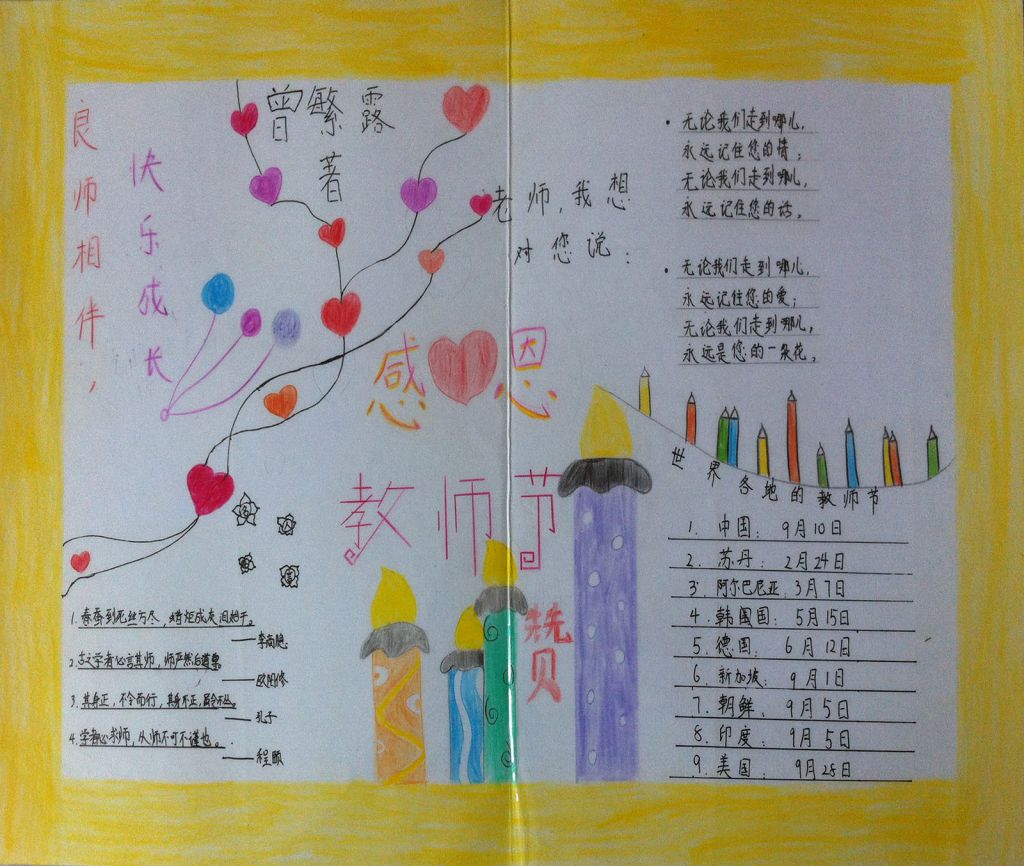 良师相伴，
快乐成长
曾繁露
著
老师，我想
对您说：
感恩
教师节
赞
1. 春蚕到死丝方尽，蜡炬成灰泪始干。
——李商隐
2. 古之学者必言其师，师严然后道尊。
——欧阳修
3. 其身正，不令而行，其身不正，虽令不从。
——孔子
4. 学者必求师，从师不可不谨也。
——程颐
· 无论我们走到哪儿，
永远记住您的情；
无论我们走到哪儿，
永远记住您的话。
· 无论我们走到哪儿，
永远记住您的爱；
无论我们走到哪儿，
永远是您的一朵花。
世界各地的教师节
1. 中国：9月10日
2. 苏丹：2月24日
3. 阿尔巴尼亚：3月7日
4. 韩国国：5月15日
5. 德国：6月12日
6. 新加坡：9月1日
7. 朝鲜：9月5日
8. 印度：9月5日
9. 美国：9月28日